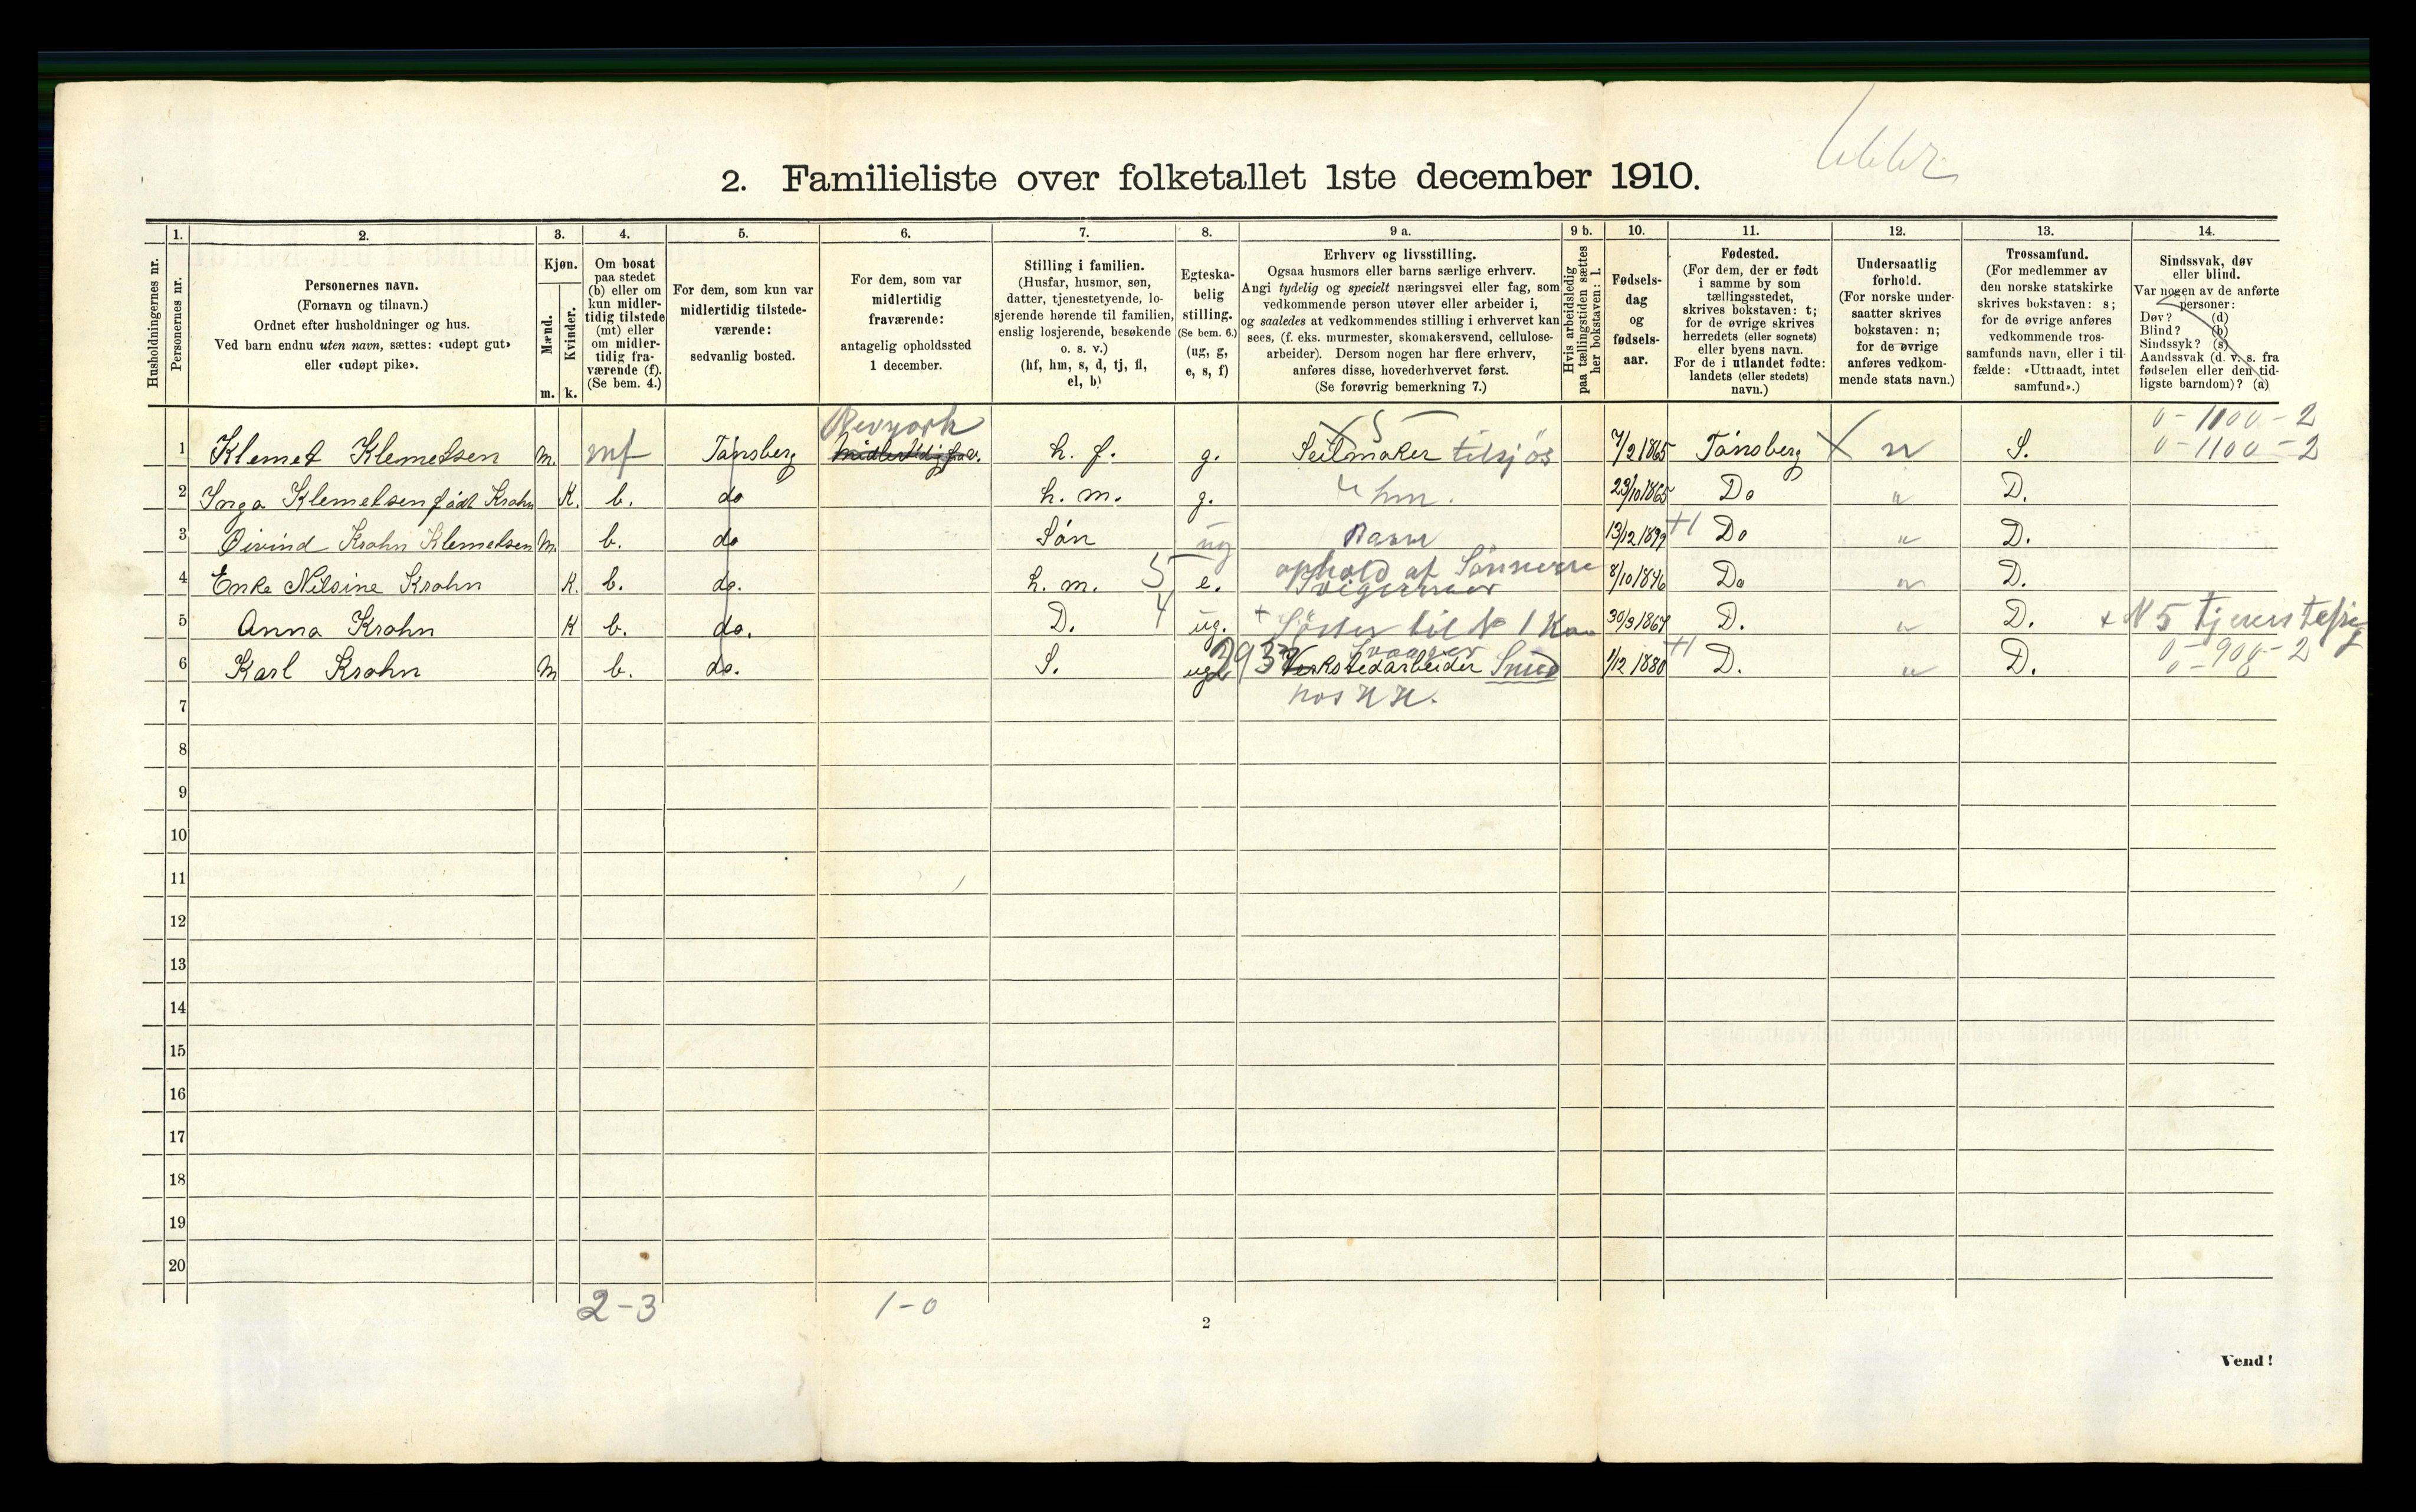 2. Familieliste over folketallet 1ste december 1910.
Husholdningernes nr.
1. Personernes nr.
2. Personernes navn.
(Fornavn og tilnavn.)
Ordnet efter husholdninger og hus.
Ved barn endnu uten navn, sættes: «udøpt gut»
eller «udøpt pike».
3. Kjøn.
Mænd. m.
Kvinder. k.
4. Om bosat
paa stedet
(b) eller om
kun midler-
tidig tilstede
(mt) eller
om midler-
tidig fra-
værende (f).
(Se bem. 4.)
5. For dem, som kun var
midlertidig tilstede-
værende:
sedvanlig bosted.
6. For dem, som var
midlertidig
fraværende:
antagelig opholdssted
1 december.
7. Stilling i familien.
(Husfar, husmor, søn,
datter, tjenestetyende, lo-
sjerende hørende til familien,
enslig losjerende, besøkende
o. s. v.)
(hf, hm, s, d, tj, fl,
el, b)
8. Egteska-
belig
stilling.
(Se bem. 6.)
(ug, g,
e, s, f)
9 a. Erhverv og livsstilling.
Ogsaa husmors eller barns særlige erhverv.
Angi tydelig og specielt næringsvei eller fag, som
vedkommende person utøver eller arbeider i,
og saaledes at vedkommendes stilling i erhvervet kan
sees, (f. eks. murmester, skomakersvend, cellulose-
arbeider). Dersom nogen har flere erhverv,
anføres disse, hovederhvervet først.
(Se forøvrig bemerkning 7.)
9 b. Hvis arbeidsledig
paa tællingstiden sættes
her bokstaven: l.
10. Fødsels-
dag
og
fødsels-
aar.
11. Fødested.
(For dem, der er født
i samme by som
tællingsstedet,
skrives bokstaven: t;
for de øvrige skrives
herredets (eller sognets)
eller byens navn.
For de i utlandet fødte:
landets (eller stedets)
navn.)
12. Undersaatlig
forhold.
(For norske under-
saatter skrives
bokstaven: n;
for de øvrige
anføres vedkom-
mende stats navn.)
13. Trossamfund.
(For medlemmer av
den norske statskirke
skrives bokstaven: s;
for de øvrige anføres
vedkommende tros-
samfunds navn, eller i til-
fælde: «Uttraadt, intet
samfund».)
14. Sindssvak, døv
eller blind.
Var nogen av de anførte
personer:
Døv? (d)
Blind? (b)
Sindssyk? (s)
Aandssvak (d. v. s. fra
fødselen eller den tid-
ligste barndom)? (a)
Newyork
0 - 1100 - 2
1 Klemet Klemetsen m. mf Tønsberg h. f. g. Seilmaker tilsjøs 7/2 1865 Tønsberg n S. 0 - 1100 - 2
2 Inga Klemetsen født Krohn K. b. do h. m. g. hm. 23/10 1865 Do " D.
3 Øivind Krohn Klemetsen m. b. do Søn ug Barn 13/12 1899 Do " D.
ophold af Sønnerne
4 Enke Nilsine Krohn K. b. do. h. m. e. Svigermor 8/10 1846 Do " D.
5 Anna Krohn K b. do. D. ug. + Søster til № 1 Kone 30/3 1867 D. " D. + N 5
Svoger
6 Karl Krohn m b. do. S. ug Verkstedarbeider Smed 1/12 1880 D. " D. 0 - 908 - 2
hos
7
8
9
10
11
12
13
14
15
16
17
18
19
20
2 - 3
1 - 0
2
Vend!